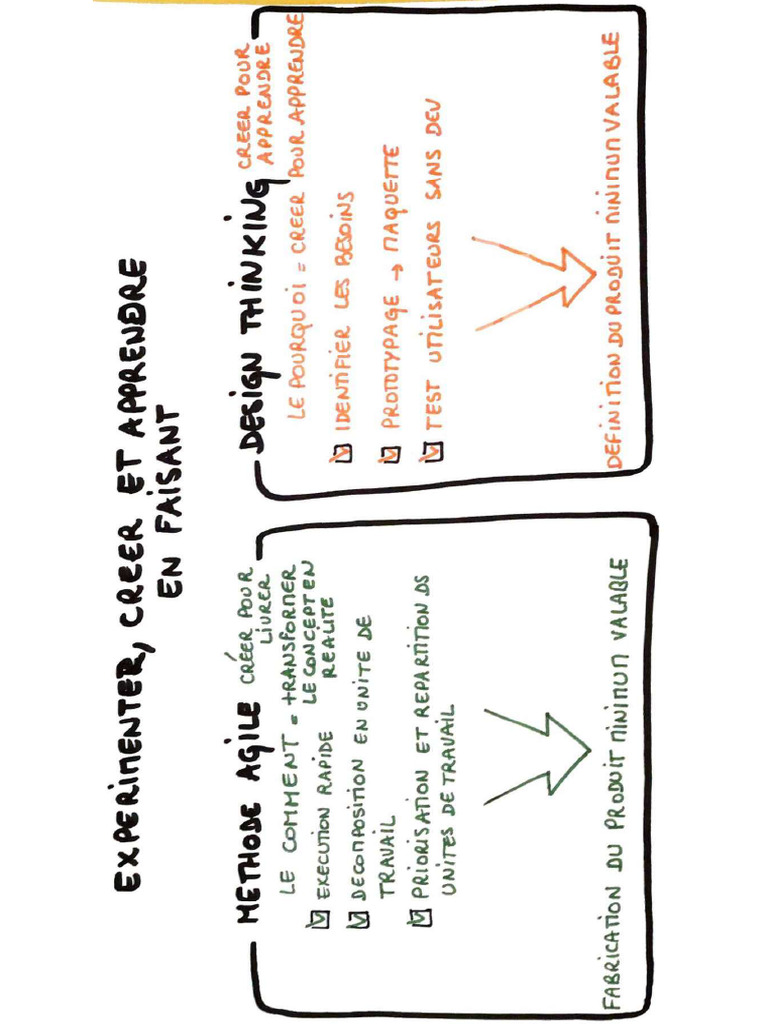 EXPERIMENTER, CREER ET APPRENDRE
EN FAISANT
METHODE AGILE CRÉER POUR
LIVRER
LE COMMENT = TRANSFORMER
LE CONCEPT EN
REALITE
EXECUTION RAPIDE
DECOMPOSITION EN UNITE DE
TRAVAIL
PRIORISATION ET REPARTITION DS
UNITES DE TRAVAIL
FABRICATION DU PRODUIT MINIMUN VALABLE
DESIGN THINKING CREER POUR
APPRENDRE
LE POURQUOI = CREER POUR APPRENDRE
IDENTIFIER LES BESOINS
PROTOTYPAGE → MAQUETTE
TEST UTILISATEURS SANS DEV
DEFINITION DU PRODUIT MINIMUN VALABLE